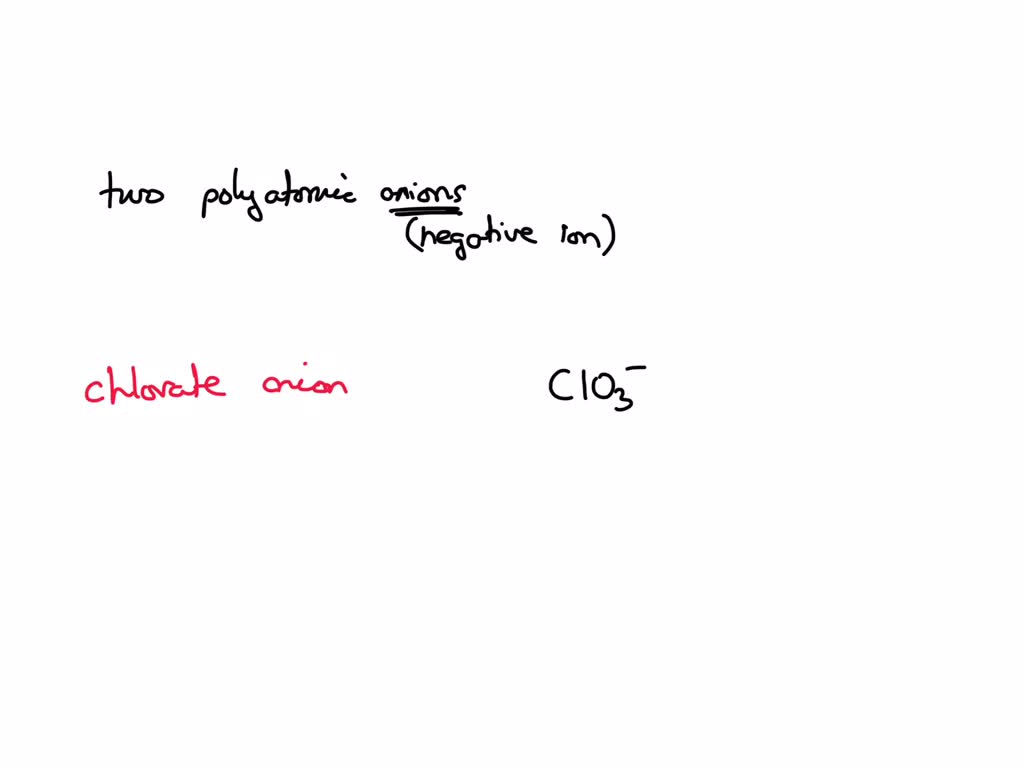 two polyatomic anions
(negative ion)
chlorate anion ClO₃⁻